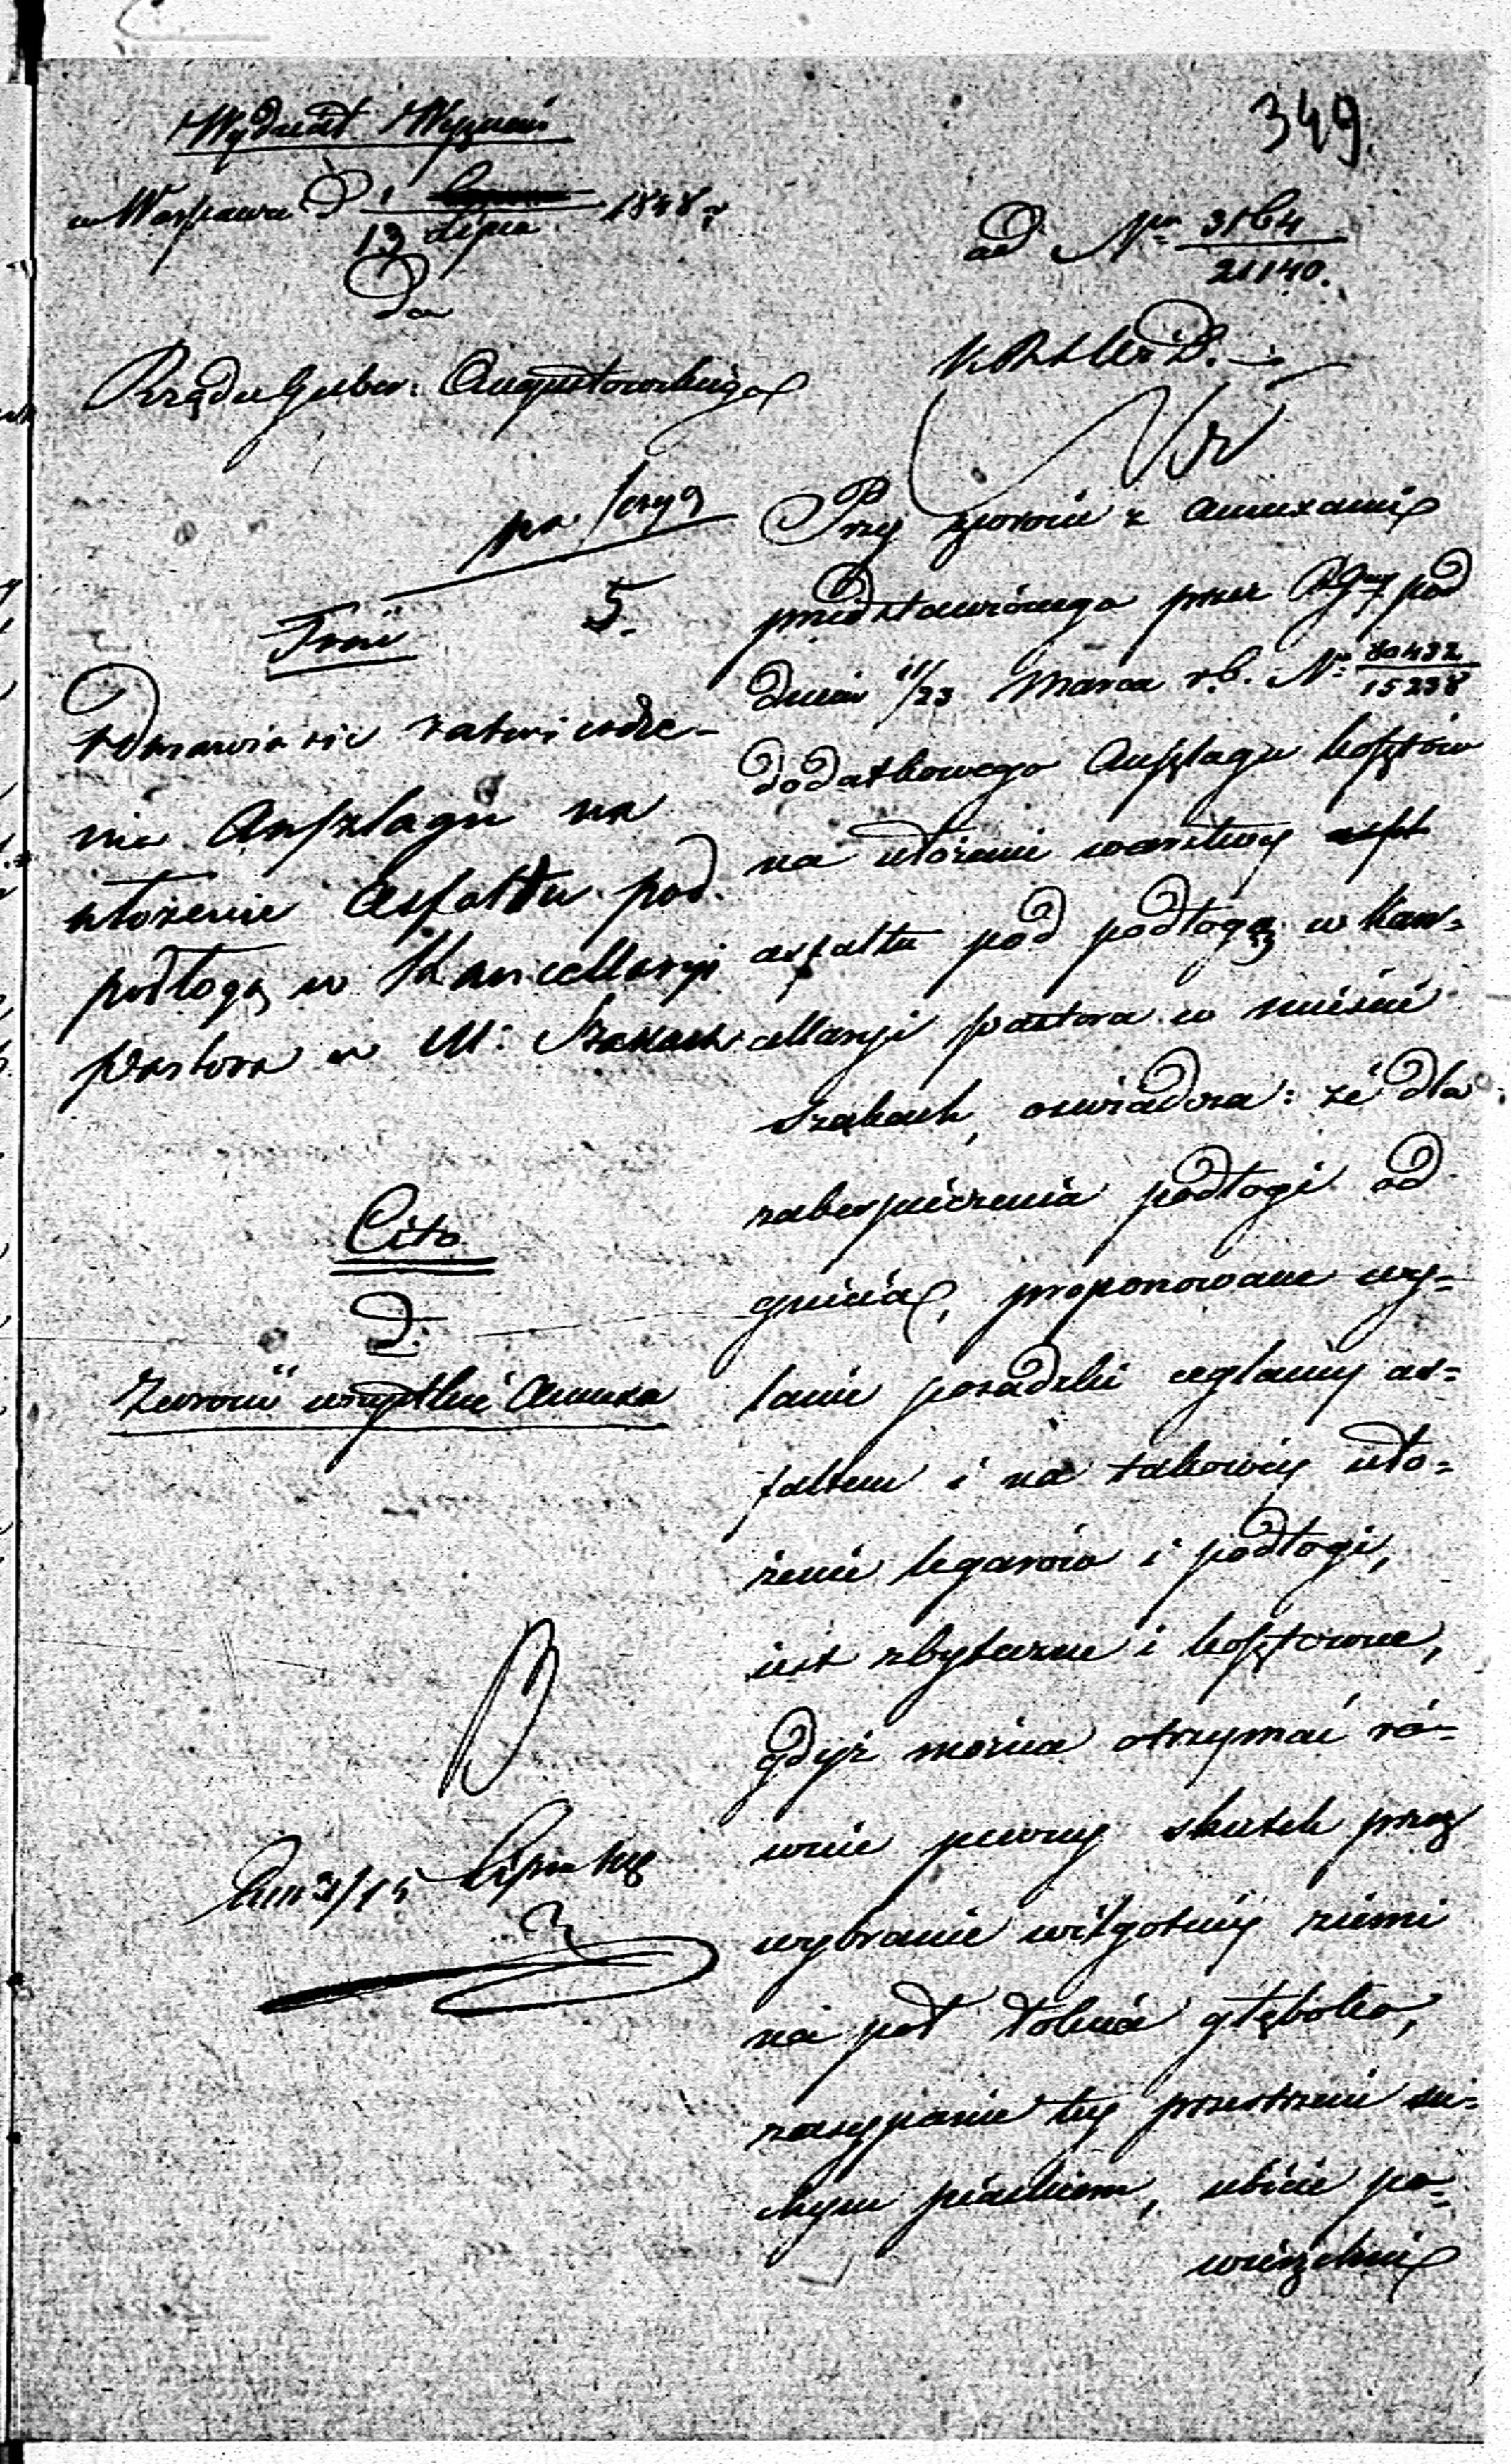 349.
Wydział Wyznań
w Warszawie D 1/13 Lipca 1848 r.
ad Nru 3164/21140.
Do
Rządu Guber: Augustowskiego
5.
Treść
Odmawia się zatwierdze-
nia Anszlagu na
ułożenie Asfaltu pod
podłogę w Kancellaryi
Pastora w M: Szakach
Cito
D.
Zwrócić wszystkie Annexa
Przy zwrocie z annexami
przedstawionego przez RGny pod
dniem 11/23 Marca r.b. Nr 80432/15238
dodatkowego Anszlagu kosztów
na ułożenie warstwy
asfaltu pod podłogę w Kan-
cellaryi pastora w mieście
Szakach, oświadcza: że dla
zabezpieczenia podłogi od
gnicia, proponowane wy-
lanie posadzki ceglanéj as-
faltem i na takowéj uło-
żenie legarów i podłogi,
jest zbyteczne i kosztowne,
gdyż można otrzymać ró-
wnie pewny skutek przez
wybranie wilgotnéj ziemi
na pół łokcia głęboko,
zasypanie téj przestrzeni su-
chym piaskiem, ubicie po-
wierzchni